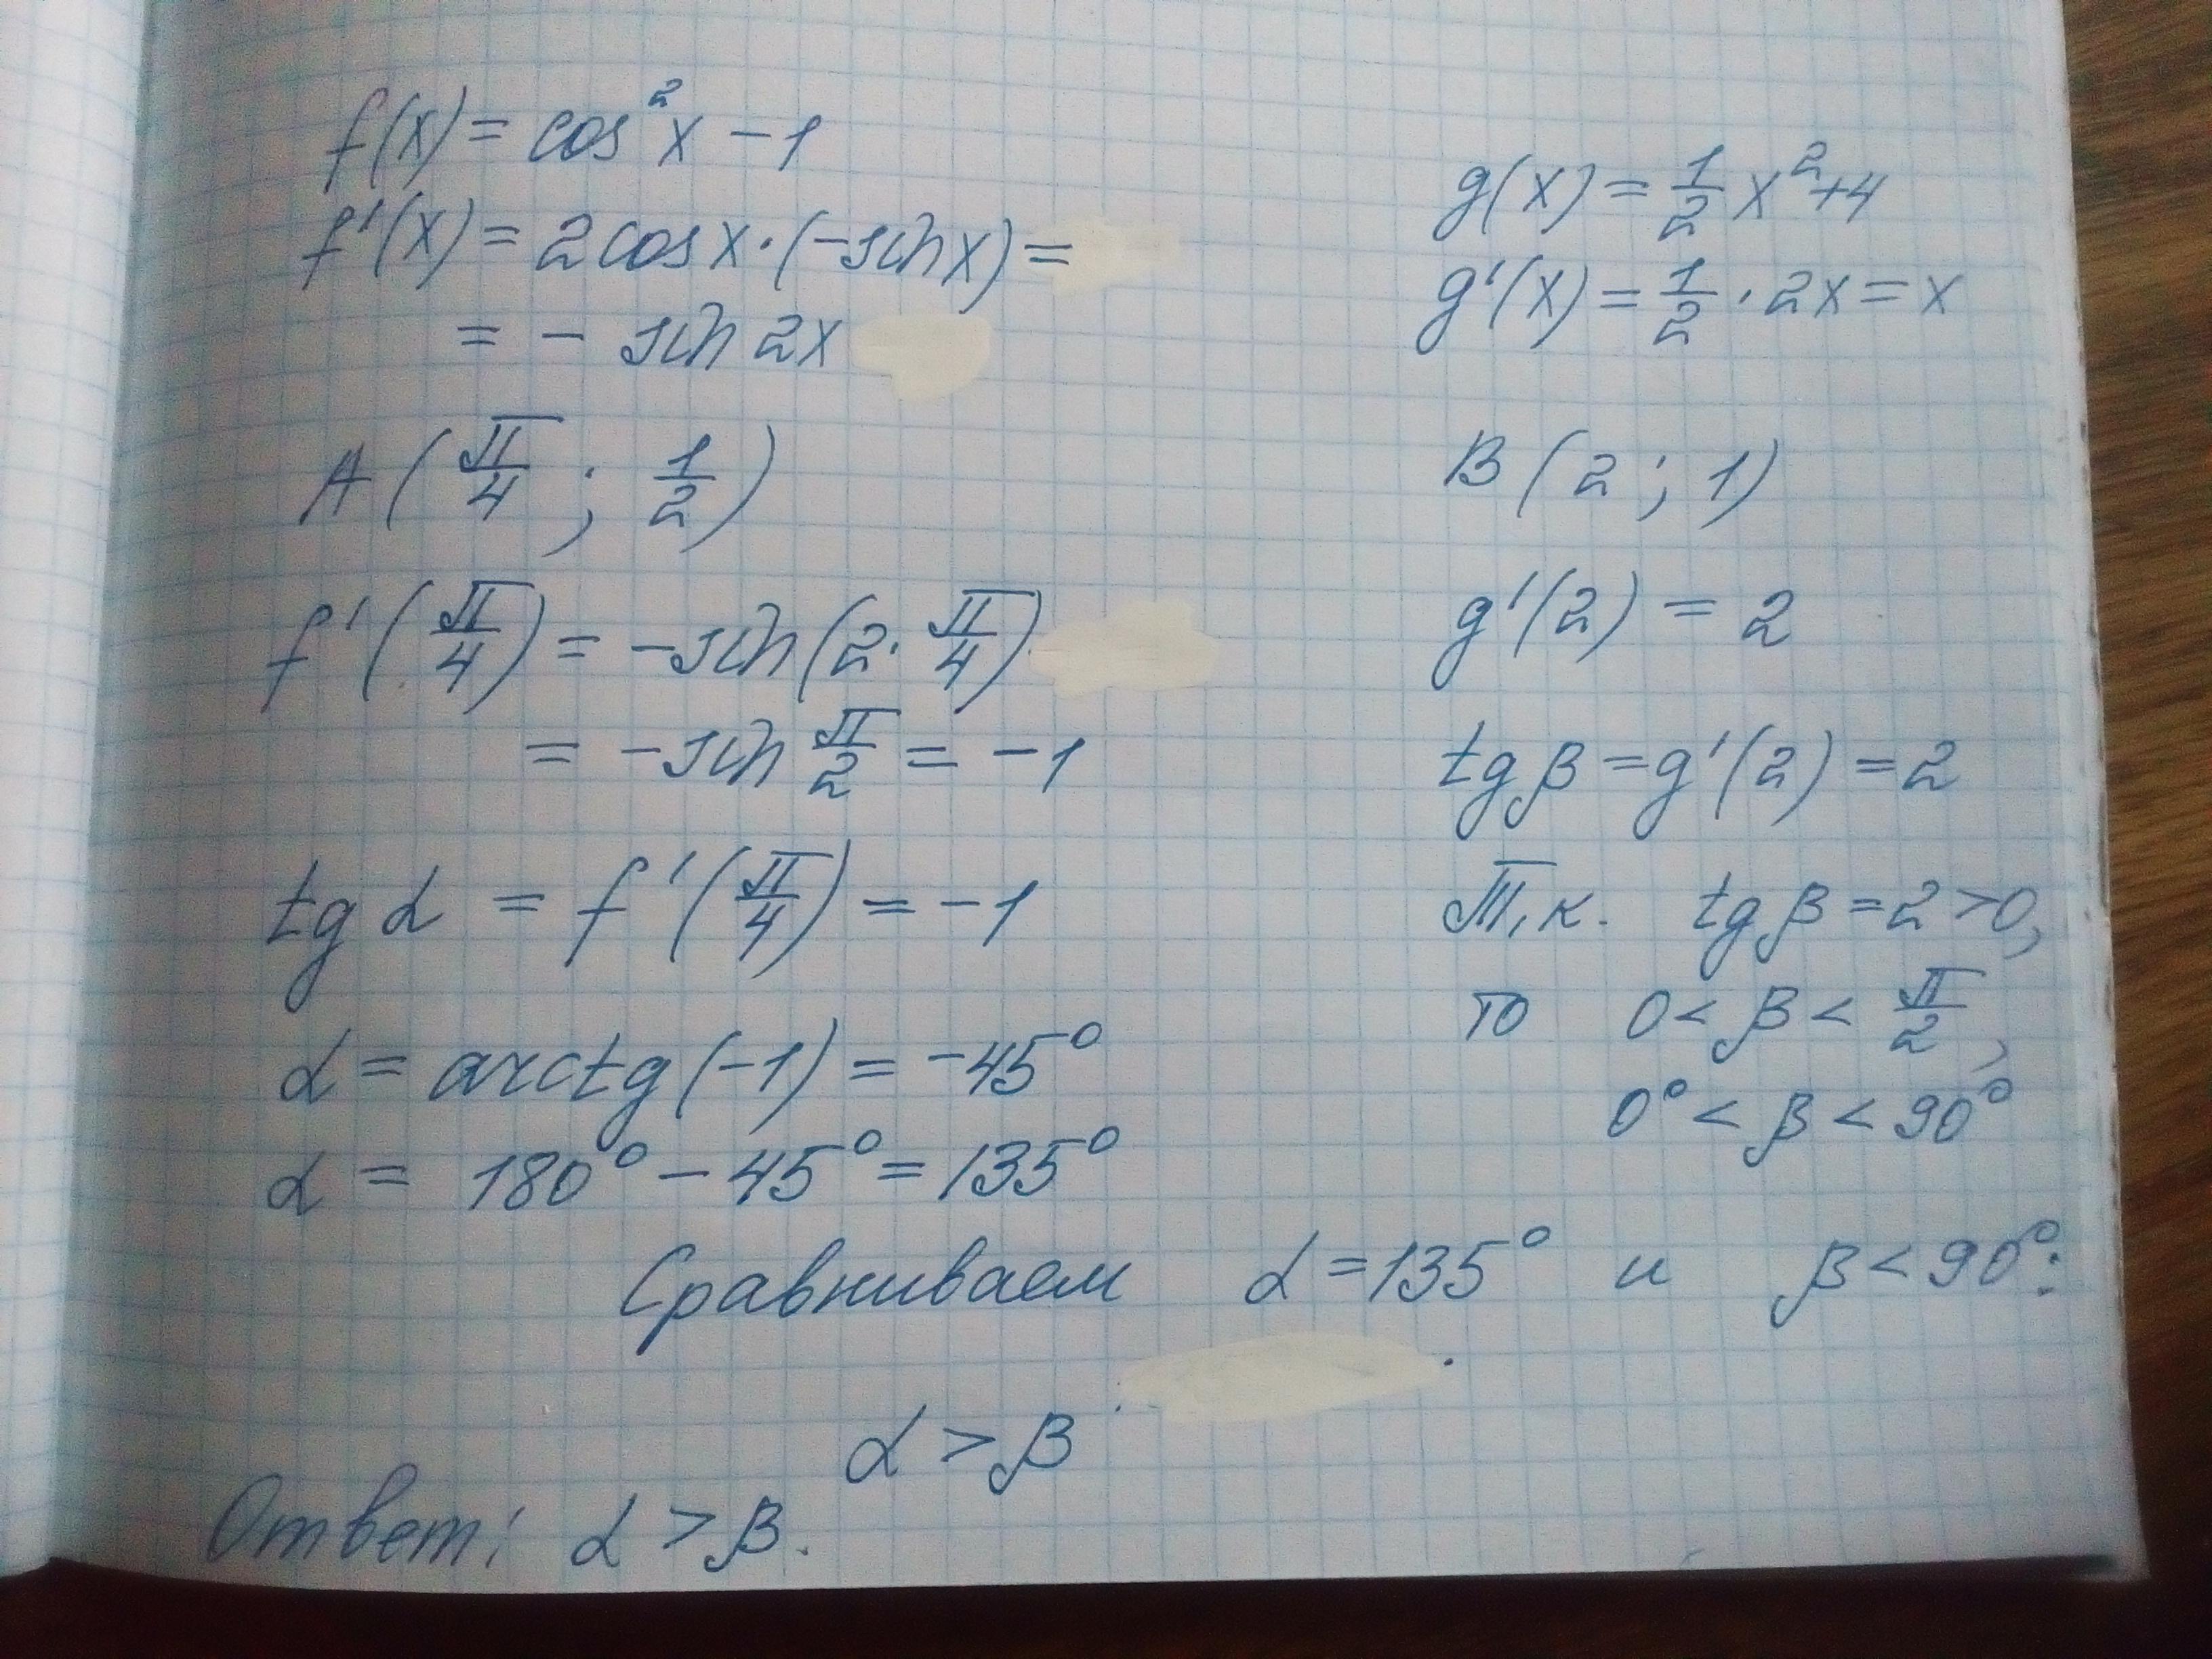 f(x) = cos²x − 1
f'(x) = 2cosx·(−sinx) =
= − sin2x
A(π/4; 1/2)
f'(π/4) = −sin(2·π/4)
= −sin π/2 = −1
tg α = f'(π/4) = −1
α = arctg(−1) = −45°
α = 180° − 45° = 135°
g(x) = 1/2 x² + 4
g'(x) = 1/2 · 2x = x
B(2; 1)
g'(2) = 2
tg β = g'(2) = 2
Т.к. tg β = 2 > 0,
то 0 < β < π/2,
0° < β < 90°
Сравниваем α = 135° и β < 90°:
α > β
Ответ: α > β.